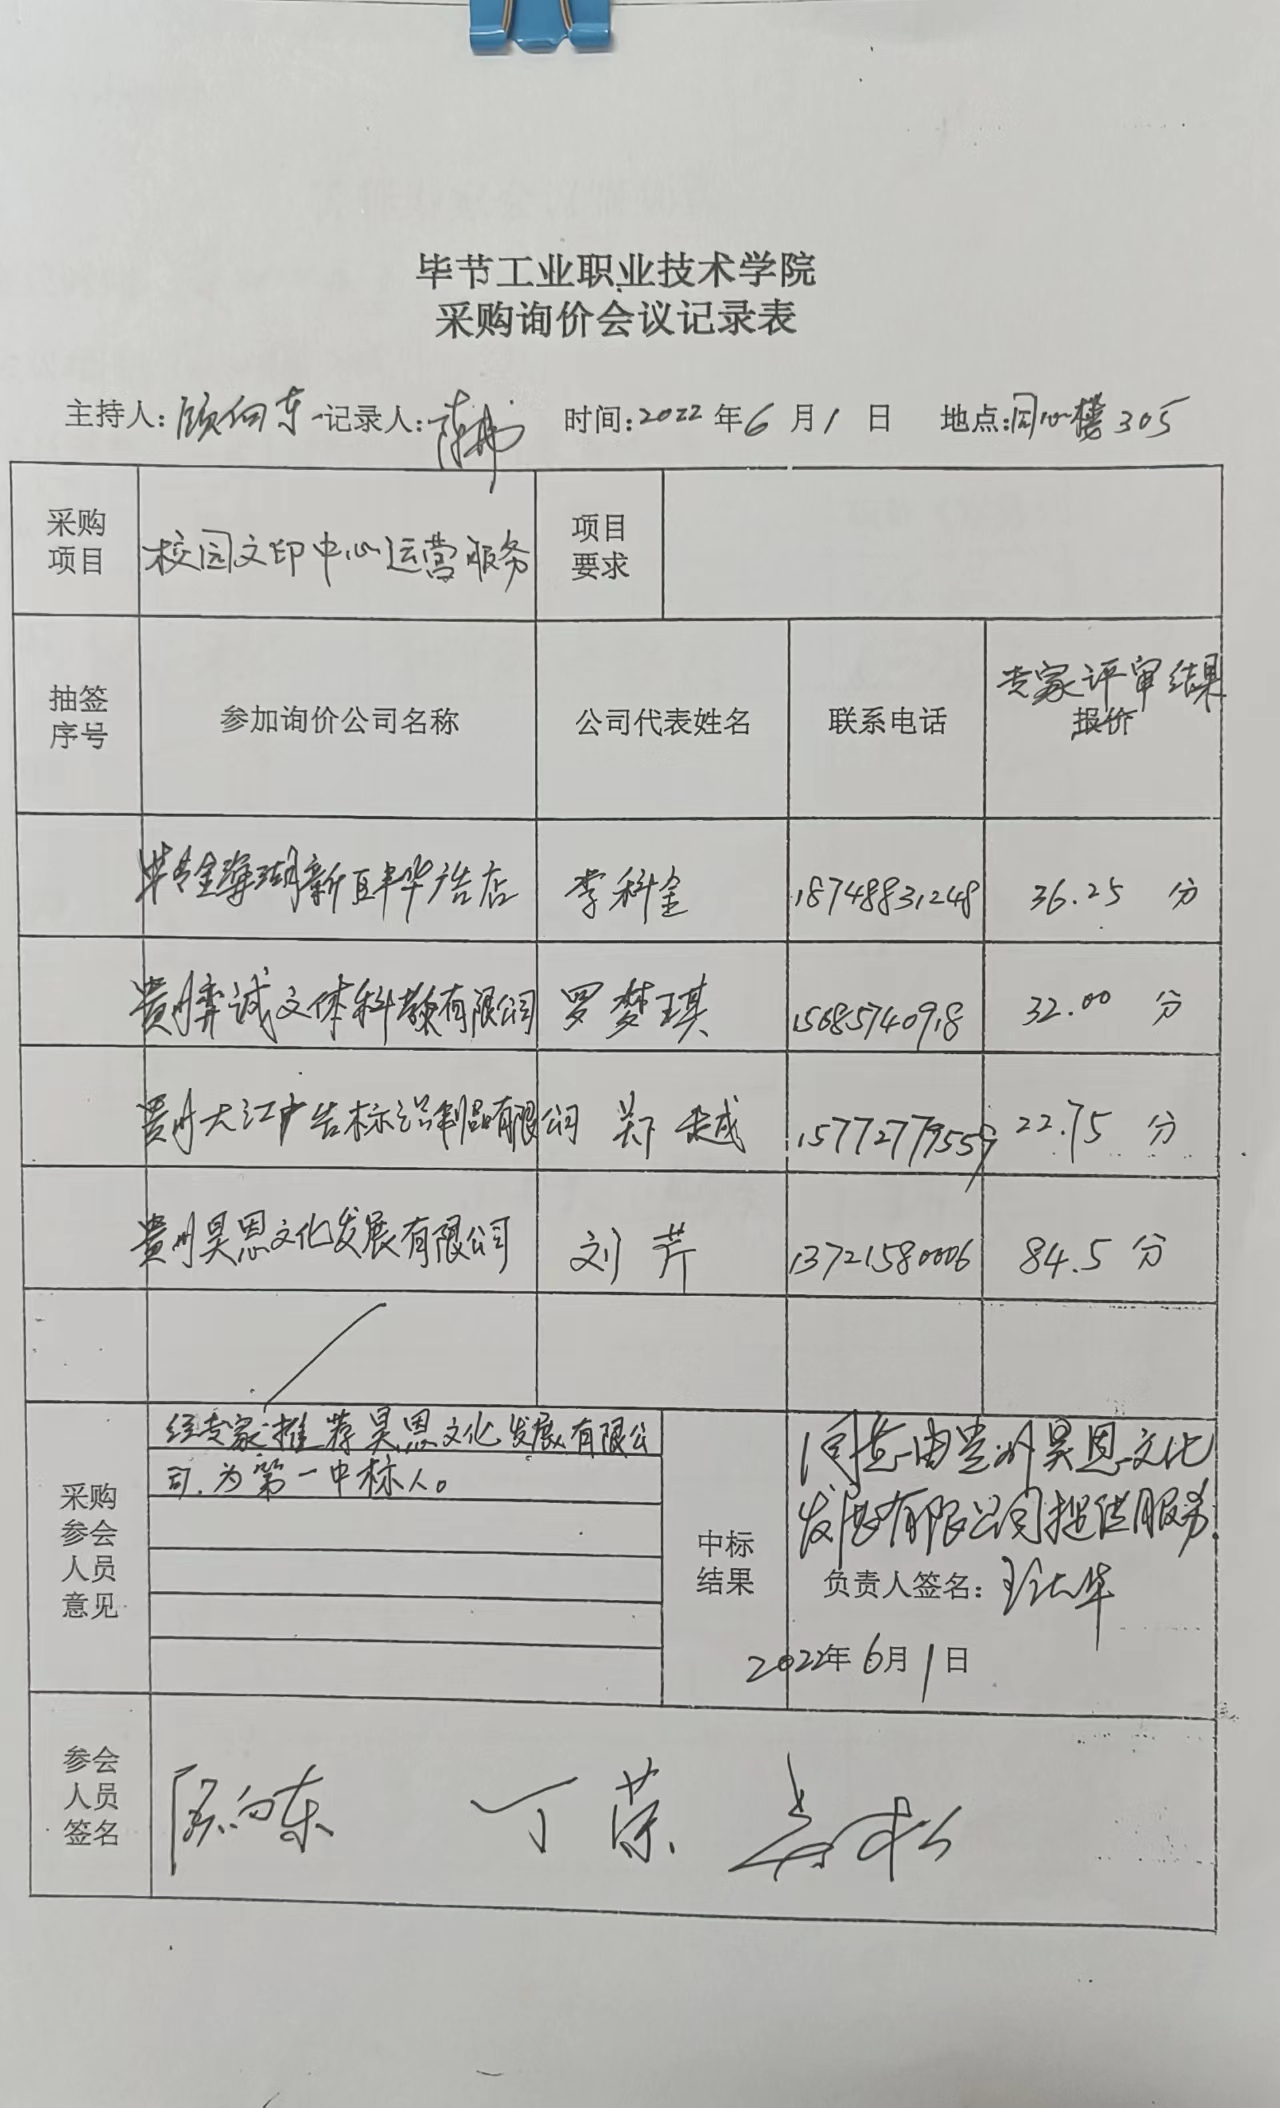 毕节工业职业技术学院
采购询价会议记录表
主持人：顾向东 记录人： 时间：2022年6月1日 地点：同心楼305
采购项目 校园文印中心运营服务 项目要求
专家评审结果
抽签序号 参加询价公司名称 公司代表姓名 联系电话 报价
毕节金海湖新区丰华广告店 李科金 18748831248 36.25 分
贵州弈诚文体科教有限公司 罗梦琪 15685740918 32.00 分
贵州大江广告标识制品有限公司 郑越 15772779559 22.75 分
贵州昊恩文化发展有限公司 刘芹 13721580006 84.5 分
采购参会人员意见
经专家推荐昊恩文化发展有限公
司，为第一中标人。
中标结果
同意由贵州昊恩文化
发展有限公司提供服务.
负责人签名：
2022年6月1日
参会人员签名
顾向东 丁荣